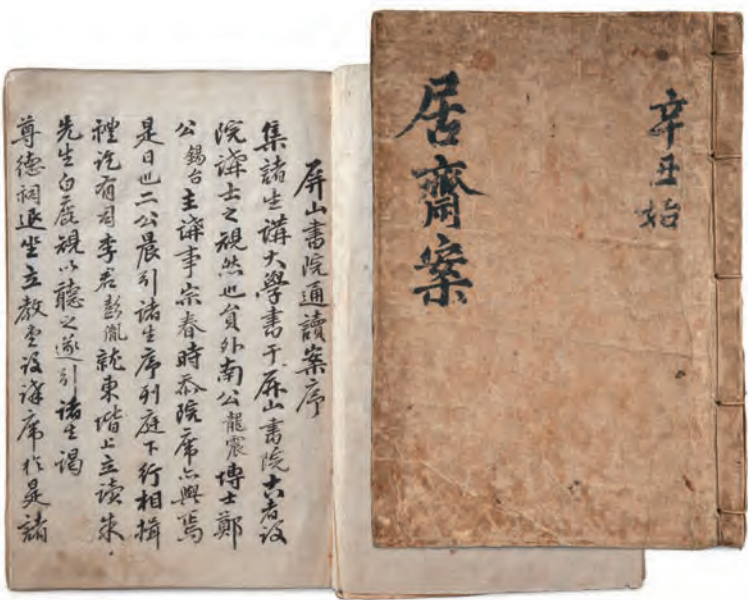 辛丑始
居齋案
屛山書院通讀案序
集諸生講大學書于屛山書院古者設
院講士之規然也員外南公龍震博士鄭
公錫台主講事宗春時忝院席亦與焉
是日也二公晨引諸生序列庭下行相揖
禮訖有司李君彭胤就東階上立讀朱
先生白鹿規以聽之遂引諸生謁
尊德祠退坐立敎堂設講席於是諸